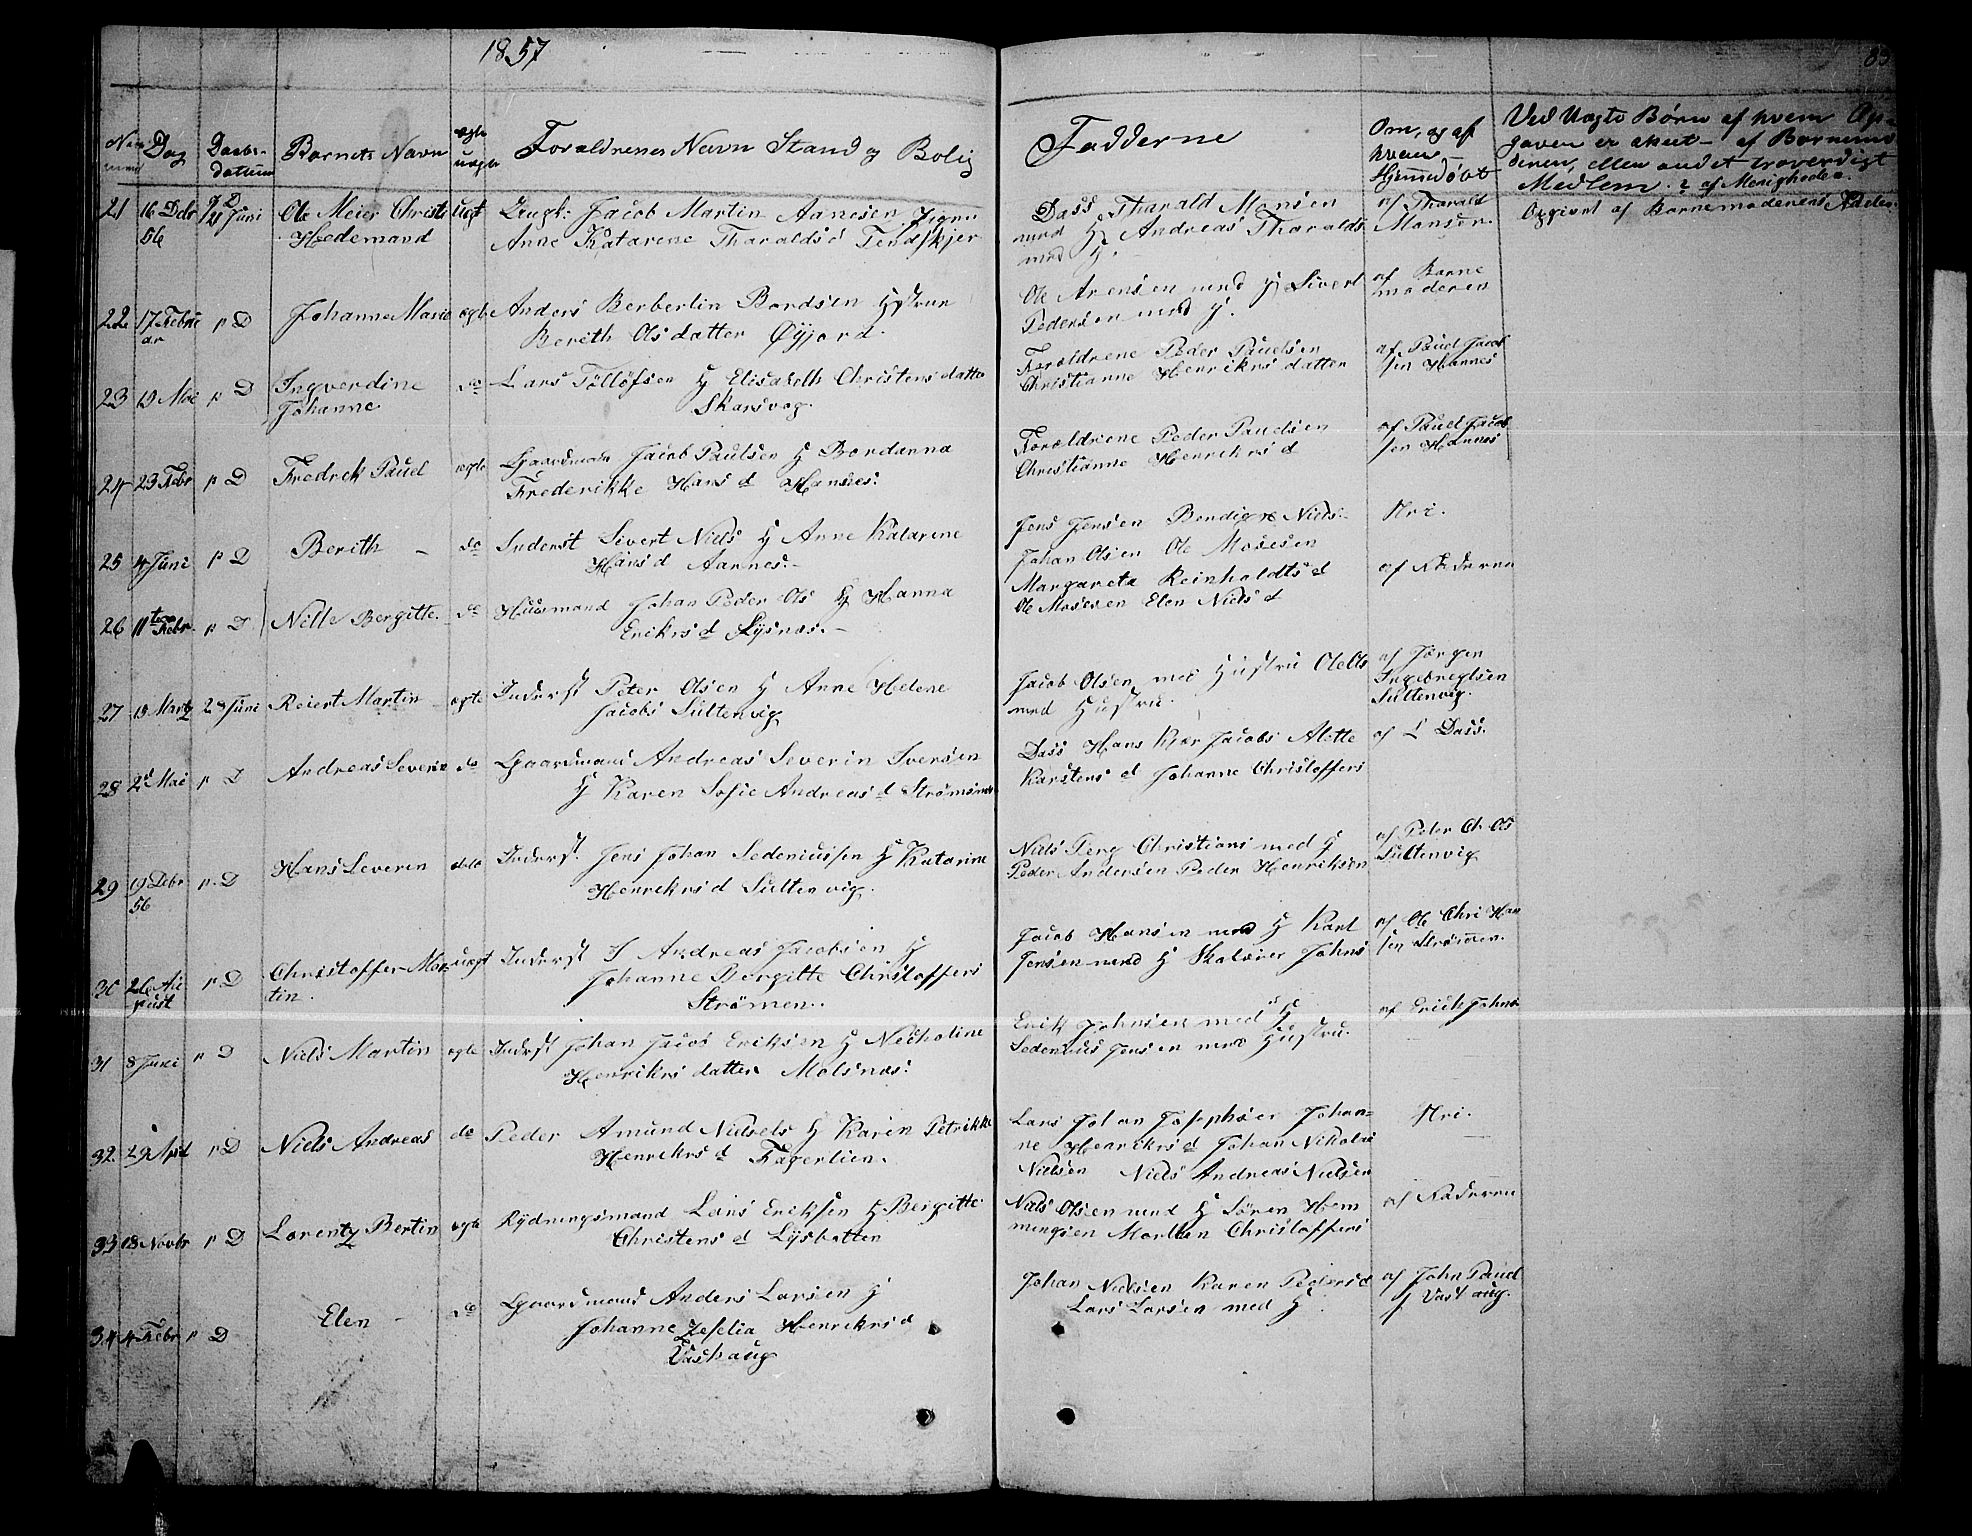 1857
83
No Dag Daabs- Barnets Navn ægte Forældrenes Navn Stand og Bolig
datum uægte
Fadderne
Om, og af
hvem
Hjemedøbt
Ved Uægte Børn af hvem Op-
gaven er skeet - af Barnemo
deren, eller andet troværdigt
Medlem af Menigheden
21 16 Debr 21 Juni Ole Meier Christ Uegt Ungk: Jacob Martin Aanesen Pigen
56 Hedemand Anne Katarene Tharaldsd Tendskjer
Dass Tharald Monsen
med H Andreas Tharalds
med H.
af Tharald
Monsen.
Opgivet af Barnemoderens
22 17 Febru p D Johanne Marie ægte Anders Berbertin Bordsen Hustrue
ar Bereth Olsdatter Øyjord.
Ole Arensen med H Sivert
Pedersen med H.
af Barne
moderen
23 19 Mai p D Ingverdine do Lars Tølløfsen H Elisabeth Christensdatter
Johanne Skarsvog.
Forældrene Peder Paulsen
Christianne Henriksdatter
af Paul Jacob
sen Hannes
24 23 Febr p D Fredrek Paul ægte Gaardmand Jacob Paulsen H Bordanna
Frederikke Hans d Hannes.
Forældrene Peder Paulsen
Christianne Henriks d
af Paul Jacob
sen Hannes
25 4 Juni p D Berith - do Inderst Sivert Niels H Anne Katarene
Hans d Aarnes.
Jens Jensen Bendigte Niels
Johan Olsen Ole Mosesen
Nei.
26 11te Febr. p D Nille Bergitte. do Huusmand Johan Peder Ols H Hanna
Eriks d Lysnes. -
Margareta Reinholdts d
Ole Mosesen Elen Niels d
af Faderen
27 19 Martz 28 Juni Reiert Martin ægte Inderst Peter Olsen H Anne Helene
Jacobs Sultenvig
Jacob Olsen med Hustru Ole Ols
med Hustru.
af Jørgen
Ingebregtsen
Sultenvig.
28 2d Mai p D Andreas Severin do Gaardmand Andreas Severin Iversen
H Karen Sofie Andreas d Strømsnes
Dass Hans Kjær Jacobs Alette
Karstens d Johanne Christoffers
af Dass.
29 19 Debr p. D Hans Severen do Inderst. Jens Johan Sedeniussen H Katarine
56 Henreks d Sultenvig.
Niels Berg Christians med H
Peder Andersen Peder Henriksen
af Peter Ch Ols
Sultenvig
30 26 Au p D Christoffer Mar- uegt Inderst I Andreas Jacobsen H
gust tin. Johanne Bergitte Christoffers
Strømen.
Jacob Hansen med H Karl
Jensen med H Johns
af Ole Chri Han
sen Strømen.
31 8 Juni p D Niels Martin ægte Inderst Johan Jacob Eriksen H Necholine
Henriksdatter Molsnæs.
Erik Johnsen med H
Sedenius Jensen med Hustru.
af Erich Johns
32. 29 April p D Niels Andreas do Peder Amund Nielsels H Karin Petrikke
Henreks d Fagerlien.
Lars Johan Josephsen Johan-
ne Henriks d Johan Nikolai
Nielsen Niels Andreas Nielsen
Nei.
33 18 Novbr p D Lorentz Bertin ægte Rydningsmand Lars Eriksen H Bergitte
Christens d Lysbotten
Niels Olsen med H Søren Hem
mingsen Morten Christoffers
af Faderen
34 4 Febr p D Elen do Gaardmand Anders Larsen H
Johanne Zeselia Henriks d
Vashaug
Johan Nielsen Karen Peders d
Lars Larsen med H
af John Paul
Vashaug.